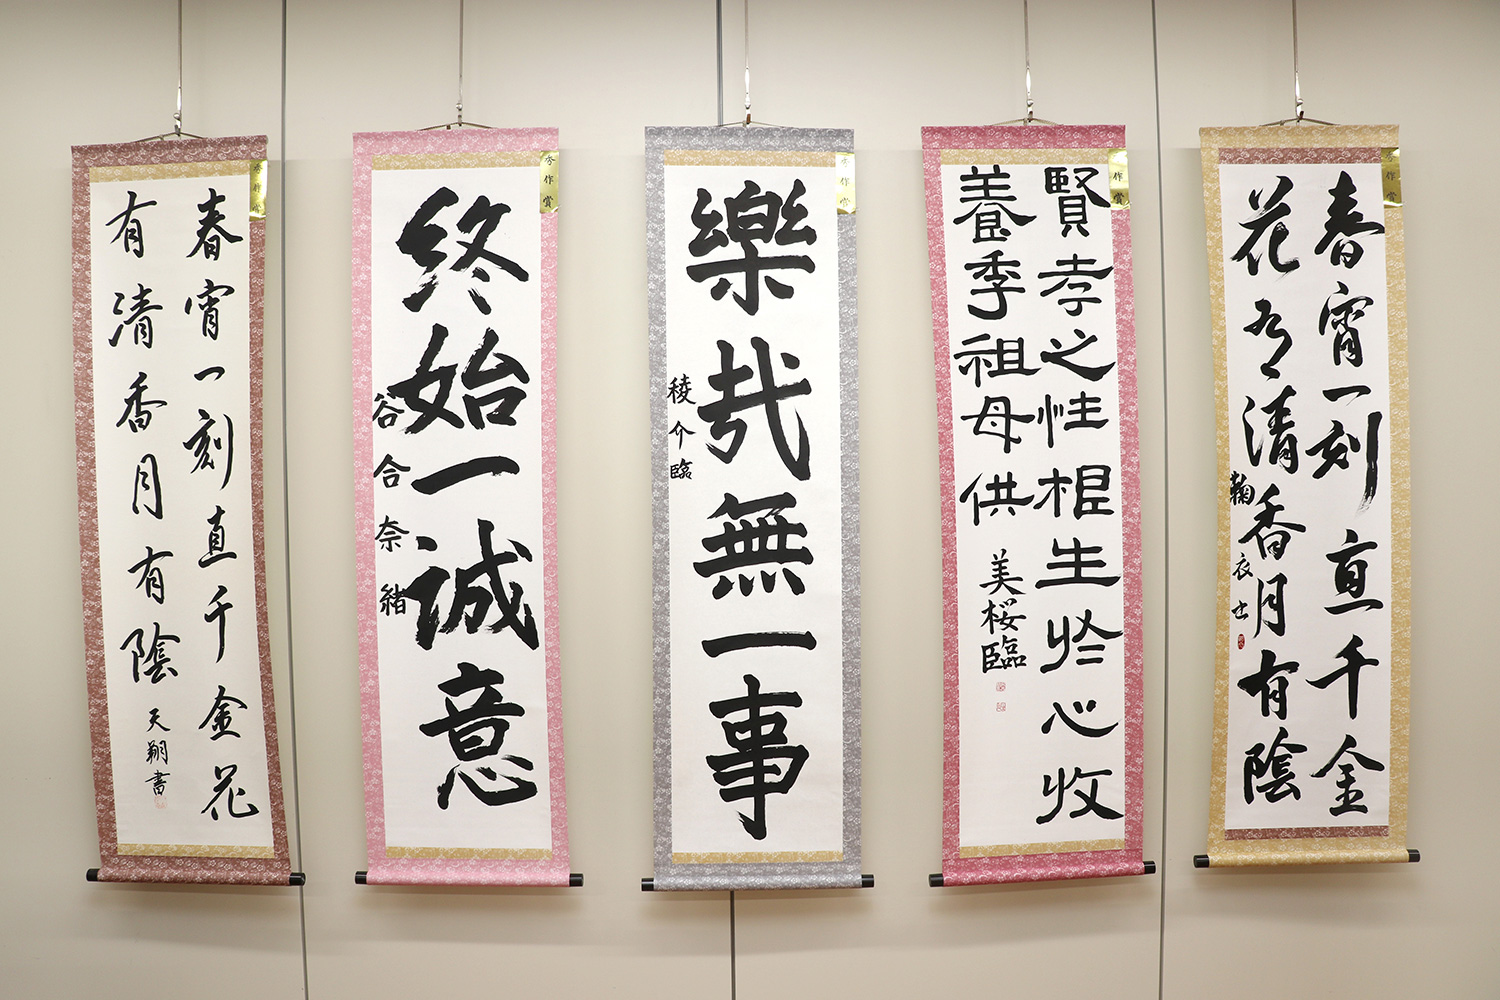 秀作賞
春宵一刻直千金花
有清香月有陰
天翔書
秀作賞
終始一誠意
谷合奈緒
秀作賞
樂哉無一事
稜介臨
秀作賞
賢孝之性根生於心收
養季祖母供
美桜臨
秀作賞
春宵一刻直千金
花有清香月有陰
鞠衣士